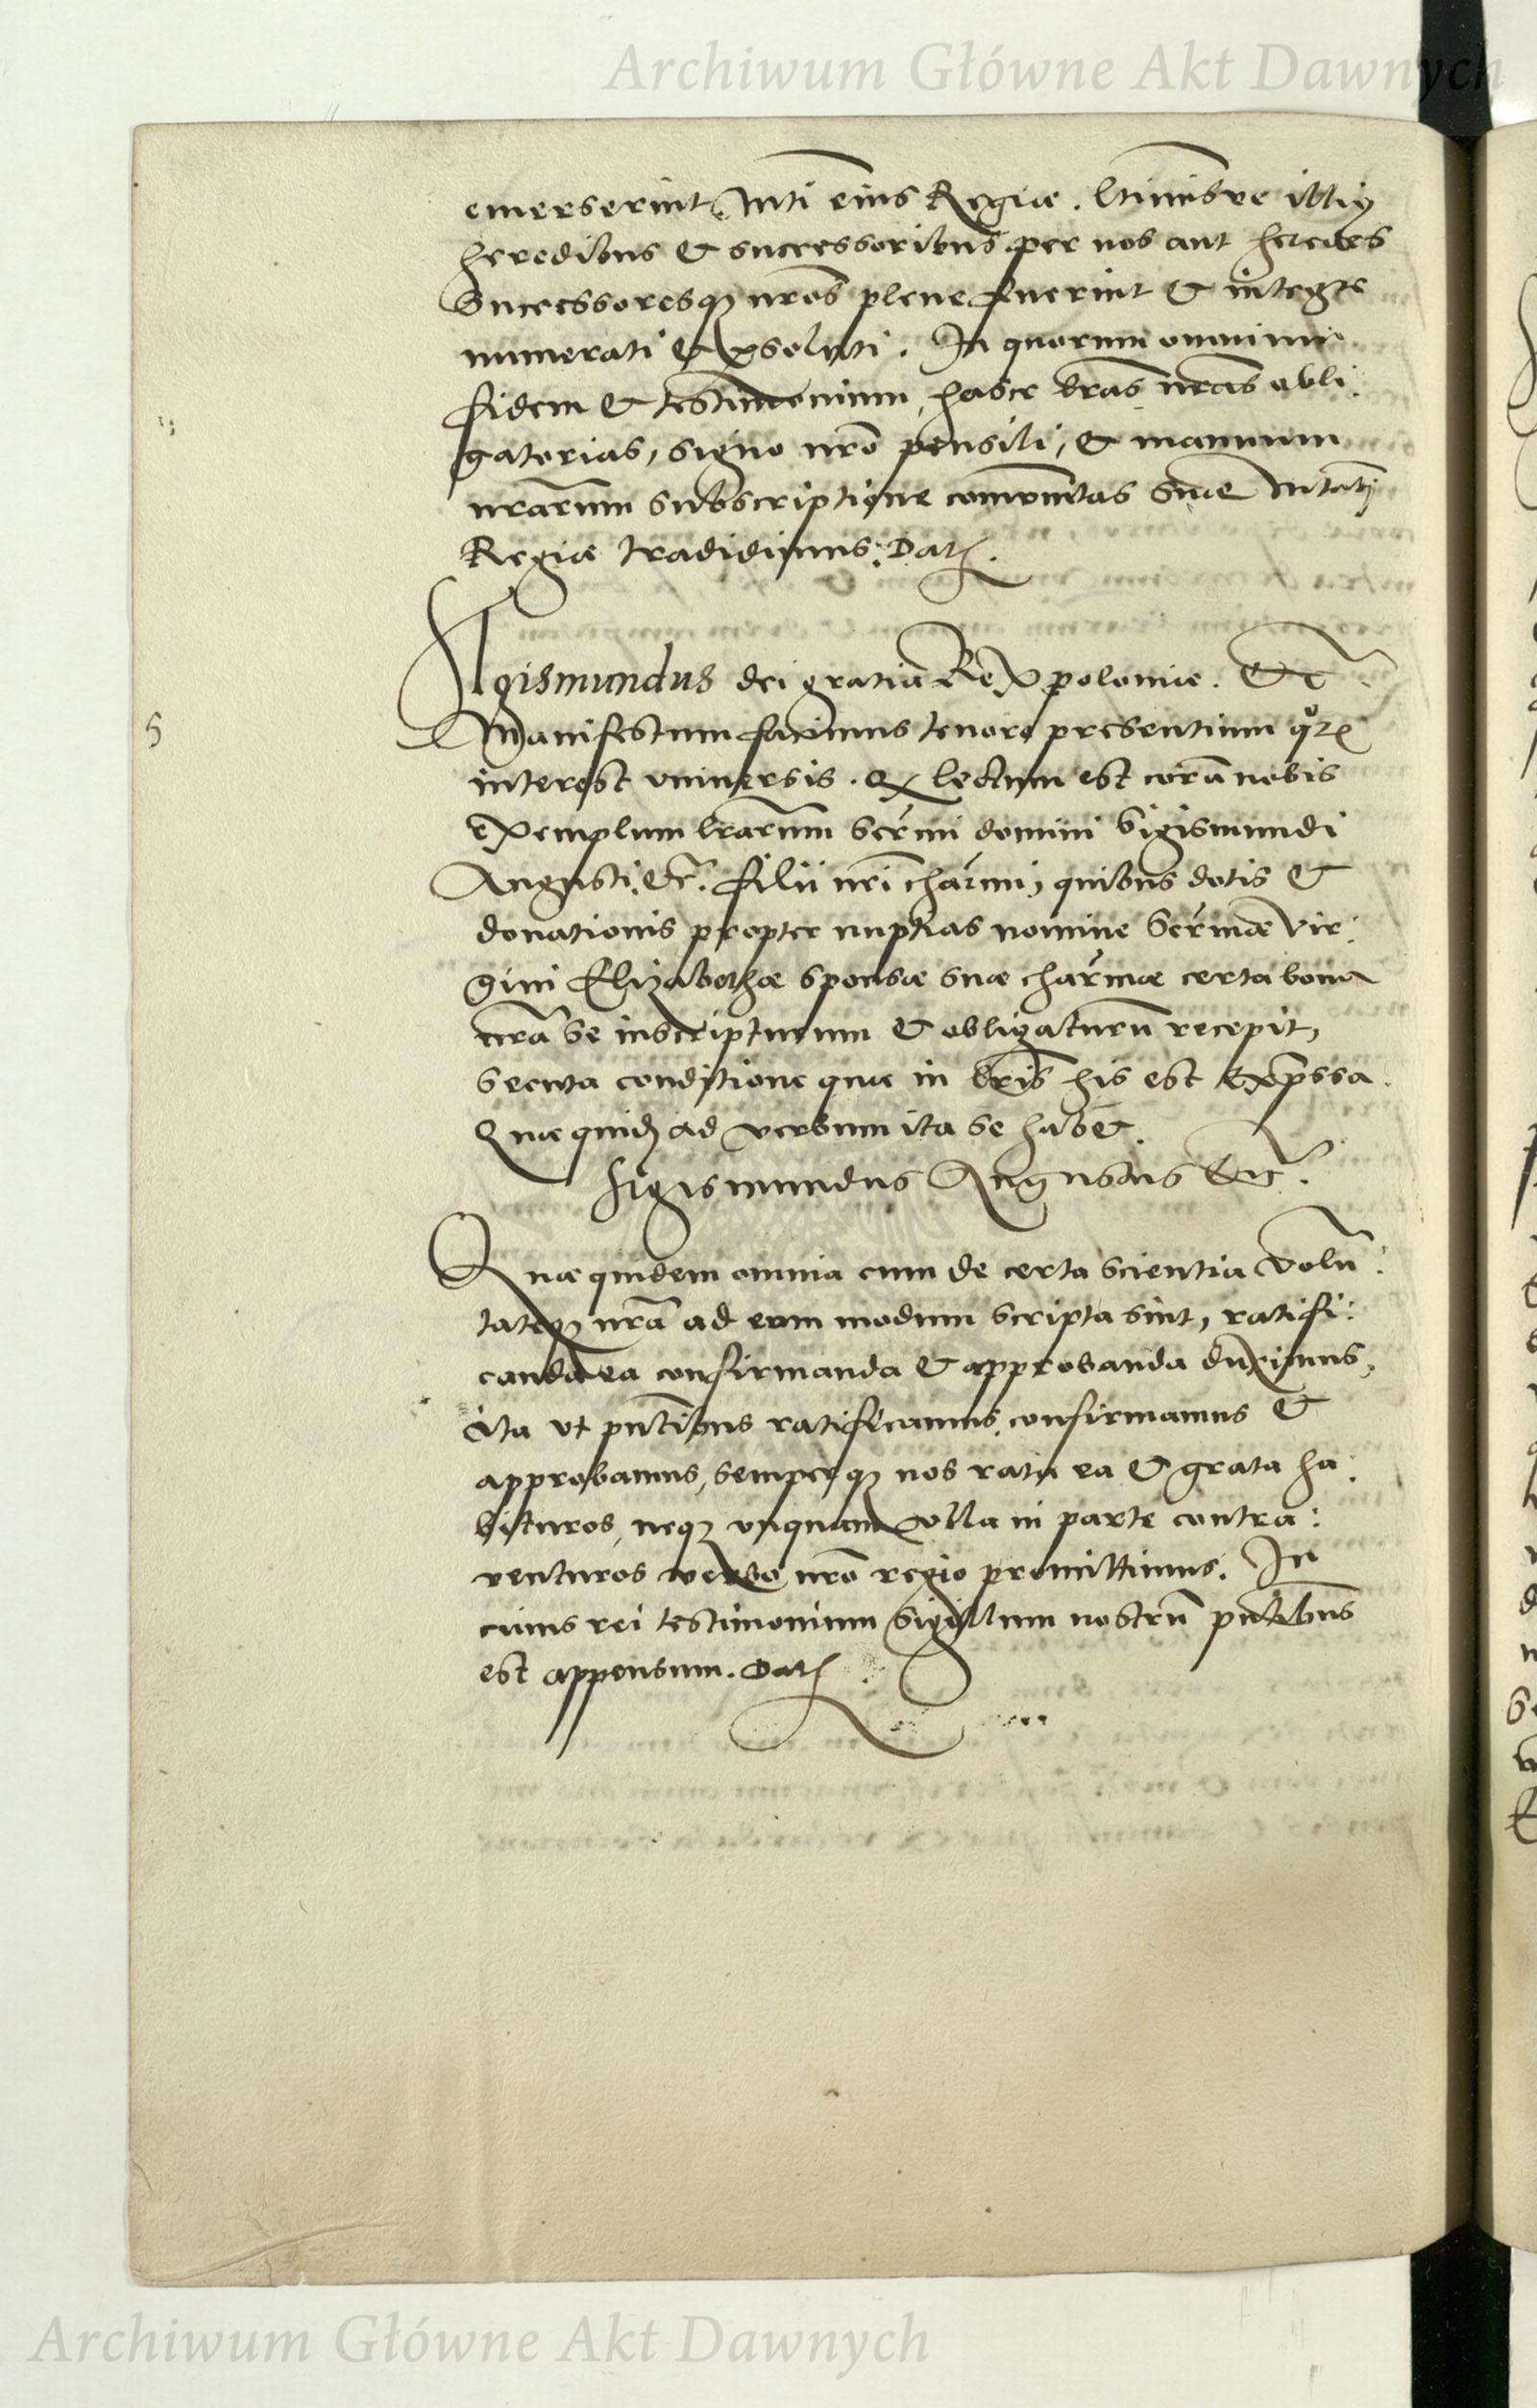 Archiwum Główne Akt Dawnych
emerserint Mti eius Regiae. ltimisve illiꝰ
heredibus & successoribus per nos aut heredes
Successoresqꝫ nros plene fuerint & integre
numerati & psoluti. In quorum omnium
fidem & testimonium, hasce lras nras obli
gatorias, signo nro pensili, & manuum
nrarum subscriptione communitas Suae Mtati
Regiae tradidimus. Dat.
Sigismundus dei gratia Rex polonie. Etc.
5
Manifestum facimus tenore presentium qoꝝ
interest vniuersis. Qꝫ lectum est corã nobis
exemplum lrarum Sermi domini Sigismundi
Augusti, etc. filii nri charmi, quibus dotis &
donationis propter nuptias nomine Sermae Vir:
gini Elizabethae sponsae suae charmae certa bona
nra se inscripturum & obligaturũ recepit,
secuta conditione quae in lris his est Expssa.
Quae quidẽ ad verbum ita se habẽt.
Sigismundus Augustus etc.
Quae quidem omnia cum de certa scientia Volũ:
tateqꝫ nra ad eum modum scripta sint, ratifi:
canda ea confirmanda & approbanda duximus,
ita vt pntibus ratificamus, confirmamus &
approbamus, semperqꝫ nos rata ea & grata ha:
bituros, neqꝫ vnquam vlla in parte contra:
venturos verbo nro regio promittimus. In
cuius rei testimonium Sigillum nostrũ pntibus
est appensum. Dat
Archiwum Główne Akt Dawnych